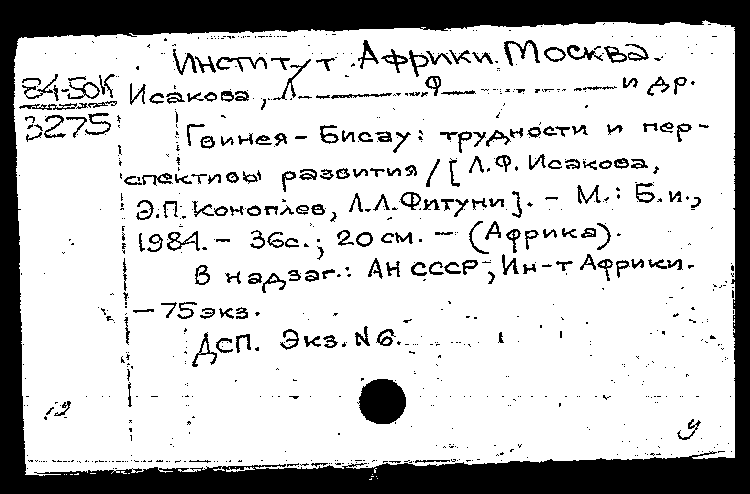 Институт Африки. Москва.
84-50К
3275
Исакова, Л Ф и др.
Гвинея-Бисау: трудности и пер-
спективы развития / [Л.Ф. Исакова,
Э.П. Коноплев, Л.Л. Фитуни]. - М.: Б.и.,
1984. - 36с.; 20 см. - (Африка).
В надзаг.: АН СССР, Ин-т Африки.
- 75 экз.
ДСП. Экз. N 6.
12
у